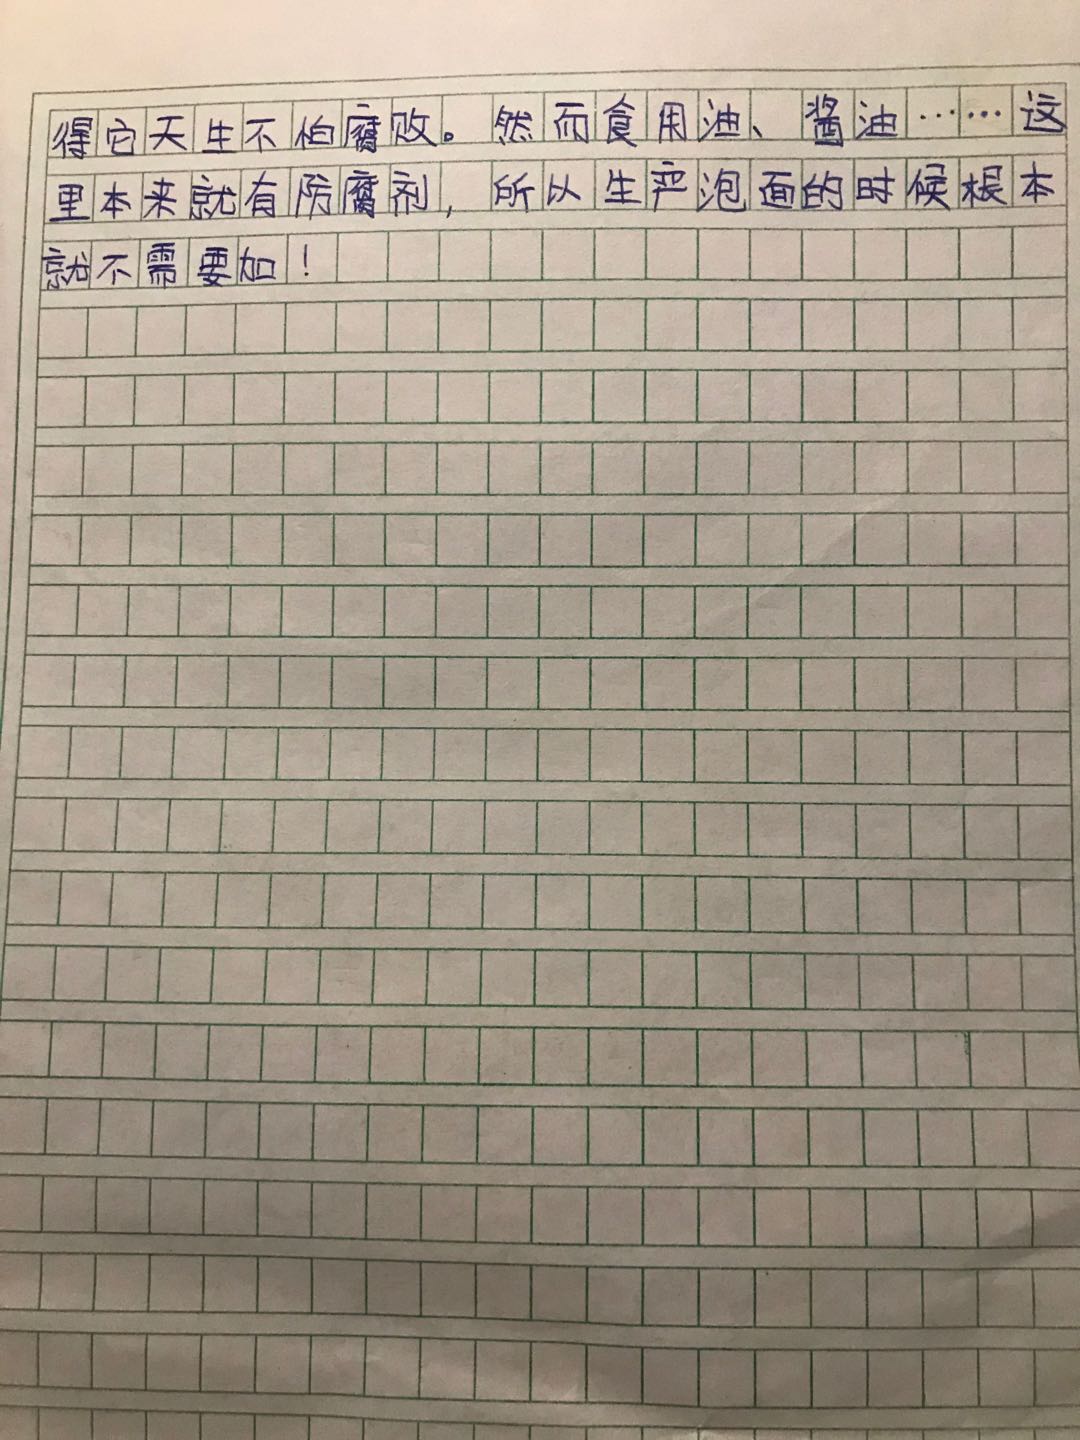 得它天生不怕腐败。然而食用油、酱油……这
里本来就有防腐剂,所以生产泡面的时候根本
就不需要加!